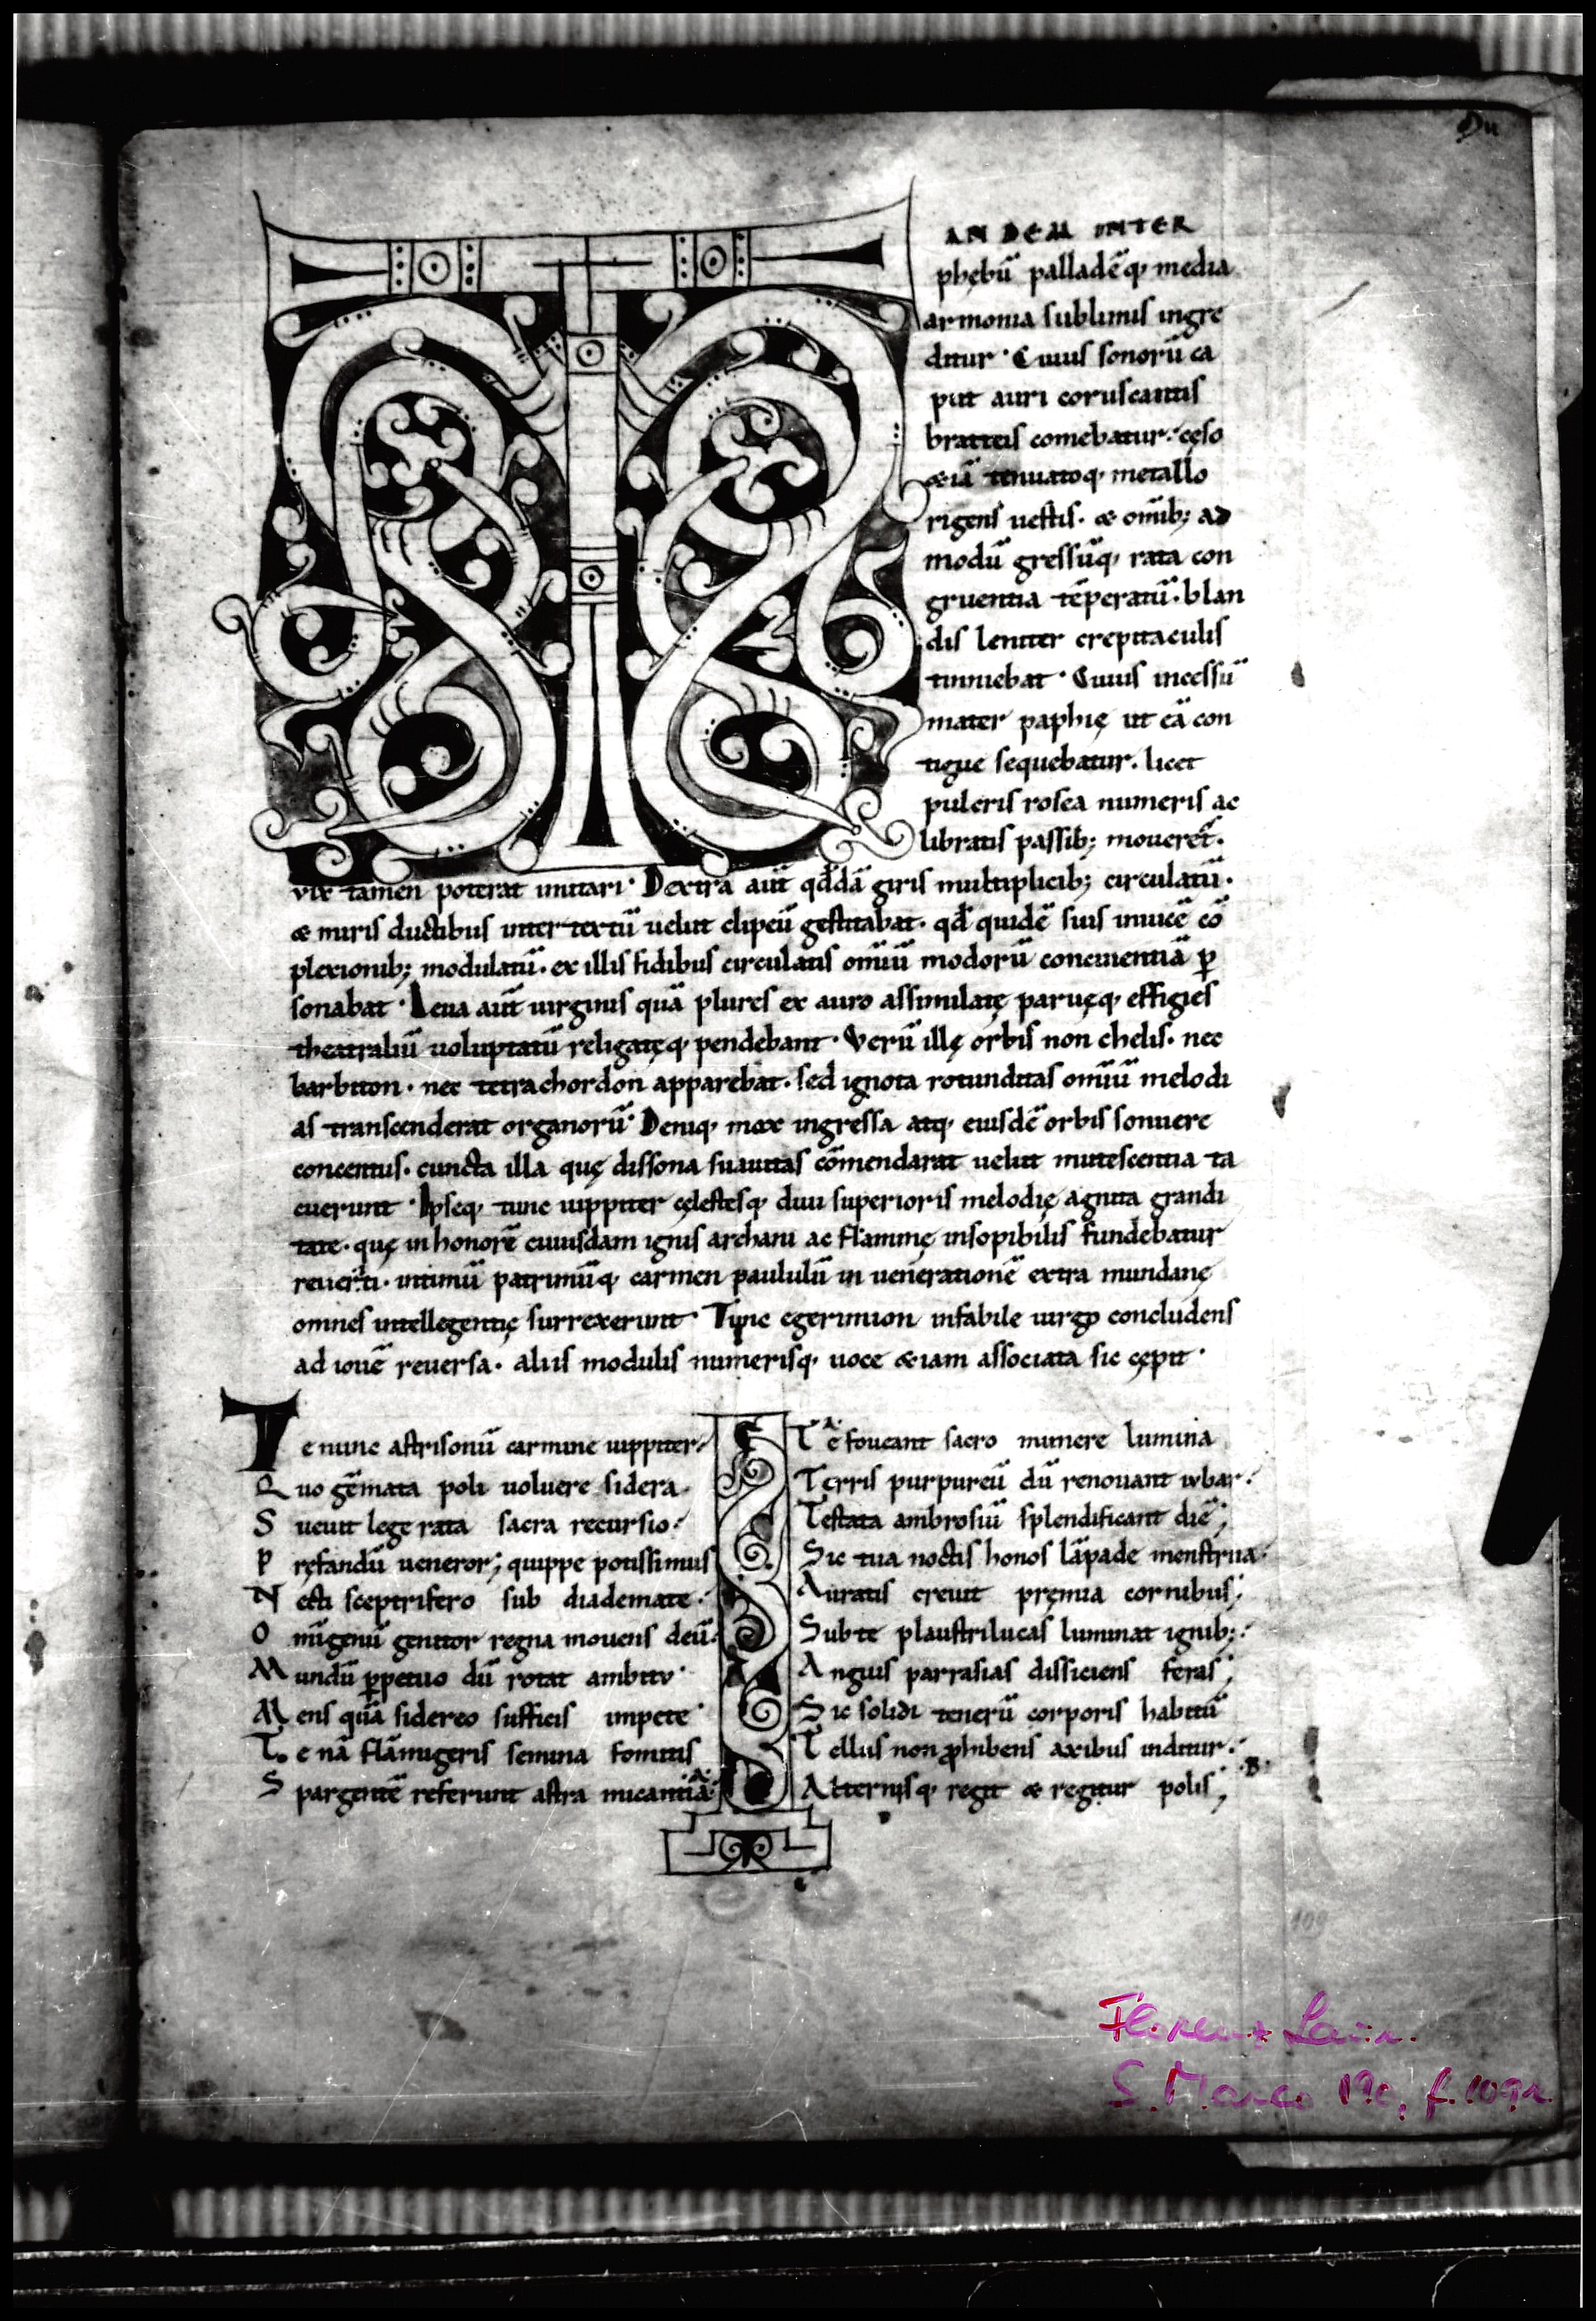 Du
TANDEM INTER
phębū palladēq; media
armonia sublimis ingre
ditur· Cuius sonorū ca
put auri coruscantis
bratteis comebatur· cęso
&iā tenuatoq; metallo
rigens uestis· & omib; ad
modū gressūq; rata con
gruentia tēperatū· blan
dis leniter crepitaculis
tinniebat· Cuius incessū
mater paphię ut eā con
tigue sequebatur· licet
pulcris rosea numeris ac
libratis passib; mouer&·
vix tamen poterat imitari· Dextra aūt qđdā giris multiplicib; circulatū·
& miris ductibus intertextū uelut clipeū gestitabat· qđ quidē suis inuicē cō
plexionib; modulatū· ex illis fidibus circulatis omiū modorū concinentiā ꝑ
sonabat· Leua aūt uirginis quā plures ex auro assimilatę paruęq; effigies
theatraliū uoluptatū religatęq; pendebant· Verū illę orbis non chelis· nec
barbiton· nec tetrachordon apparebat· sed ignota rotunditas omiū melodi
as transcenderat organorū· Deniq; mox ingressa atq; eiusdē orbis sonuere
concentus· cuncta illa quę dissona suauitas cōmendarat uelut mutescentia ta
cuerunt· Ipseq; tunc iuppiter cęlestesq; diui superioris melodię agnita grandi
tate· quę in honorē cuiusdam ignis archani ac flammę insopibilis fundebatur
reuerti· intimū patrimūq; carmen paululū in uenerationē extra mundanę
omnes intellegentię surrexerunt· Tunc egerimion infabile uirgo concludens
ad iouē reuersa· aliis modulis numerisq; uoce &iam associata sic cępit·
Te nunc astrisonū carmine iuppiter·
Quo gēmata poli uoluere sidera·
Sueuit lege rata sacra recursio·
Pręfandū ueneror; quippe potissimus
Necti sceptrifero sub diademate·
Omigenū genitor regna mouens deū·
Mundū ꝑpetuo dū rotat ambitu·
Mens quā sidereo sufficis impete·
Te nā flāmigeris semina fomitis
Spargentē referunt astra micantia·
A·
Te foueant sacro munere lumina
Terris purpureū dū renouant iubar·
Testata ambrosiū splendificant diē;
Sic tua noctis honos lāpade menstrua·
Auratis creuit pręmia cornibus;
Sub te plaustrilucas luminat ignib;·
Anguis parrasias dissiciens feras;
Sic solidi tenerū corporis habitū
Tellus non ꝓhibens axibus inditur·
Alternisq; regit & regitur polis; ·B·
109
Florenz Laur.
S. Marco 190, f. 109r